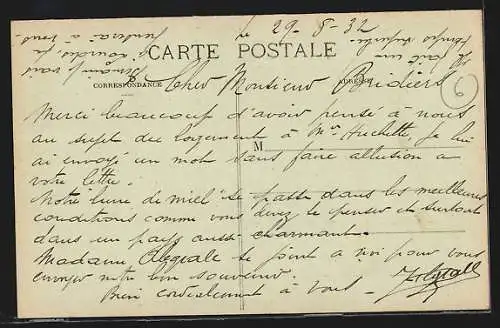 le 29-8-32
CARTE POSTALE
CORRESPONDANCE
ADRESSE
Cher Monsieur Bridiers
Merci beaucoup d'avoir pensé à nous
au sujet du logement à Mr Huchette, je lui
M
ai envoyé un mot sans faire allusion a
votre lettre.
Notre lune de miel se passe dans les meilleures
conditions comme vous devez le penser et surtout
dans un pays aussi charmant.
Madame se joint a moi pour vous
envoyer notre bon souvenir.
Bien cordialement à vous
Il fait un
temps superbe
Dimanche nous
à Lourdes, je
penserai à vous
6